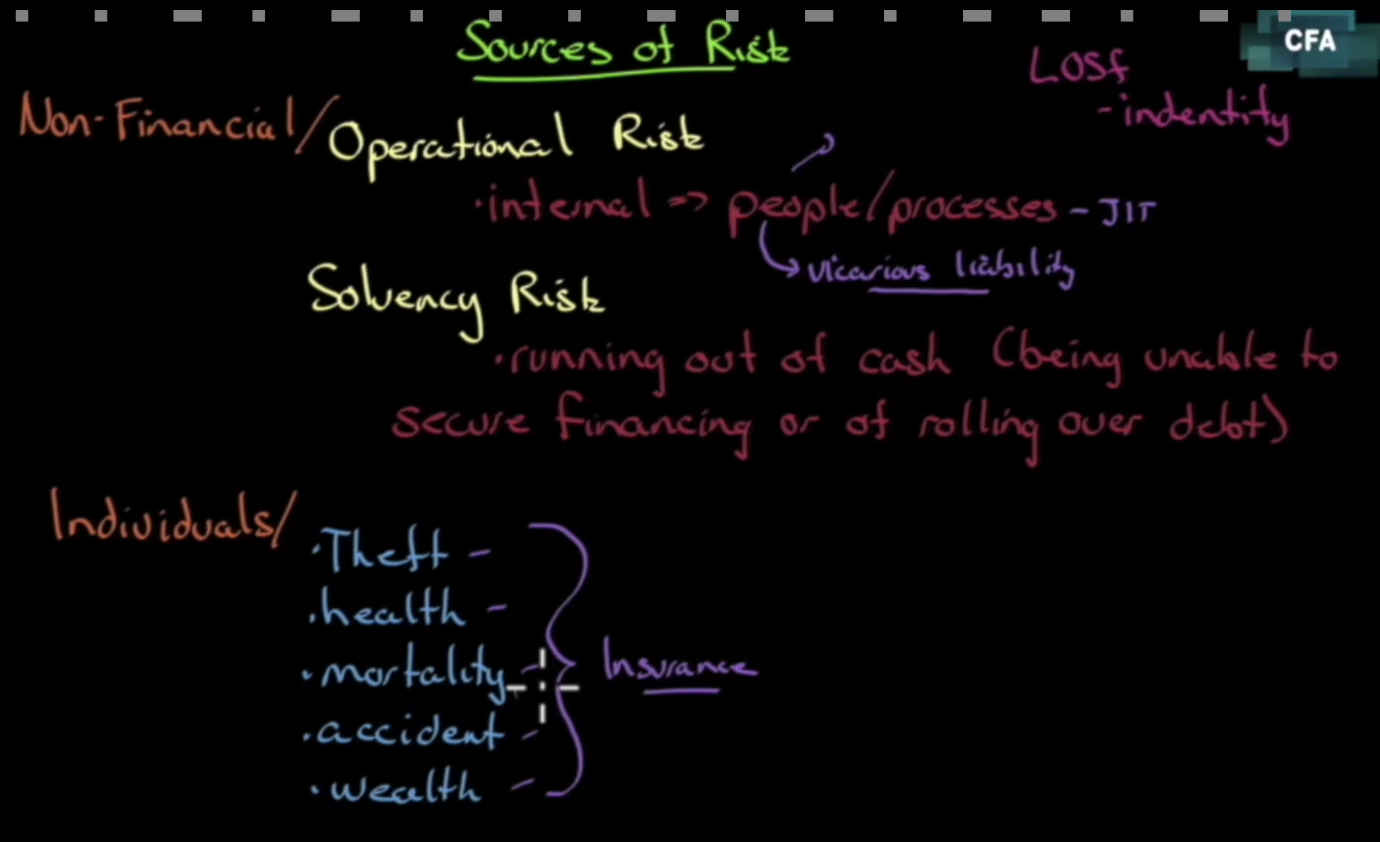 Sources of Risk
CFA
LOSf
- indentity
Non-Financial/
Operational Risk
·internal => people/processes - JIT
vicarious liability
Solvency Risk
·running out of cash (being unable to
secure financing or of rolling over debt)
Individuals/
·Theft -
·health -
·mortality -
·accident -
·wealth -
Insurance